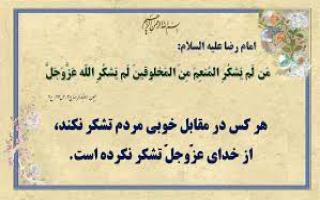 بسم الله الرحمن الرحیم
امام رضا علیه السلام:
مَن لَم یَشکُرِ المُنعِمَ مِنَ المَخلوقینَ لَم یَشکُرِ اللّهَ عَزَّوَجَلَّ
هر کس در مقابل خوبی مردم تشکر نکند،
از خدای عزّوجلّ تشکر نکرده است.